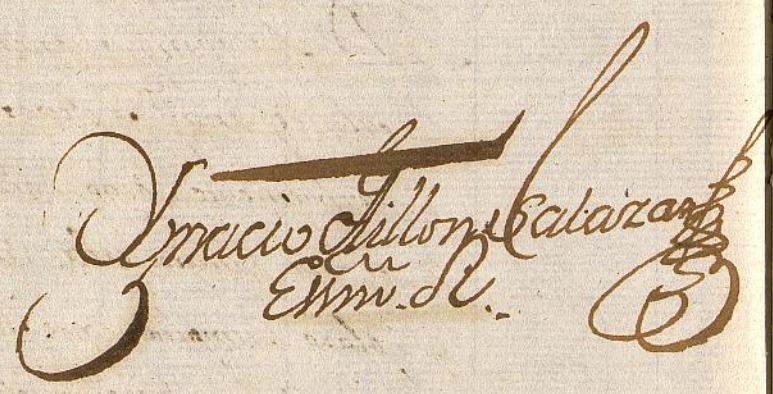 Ygnacio Ayllon Salazar
Essno. Rl.